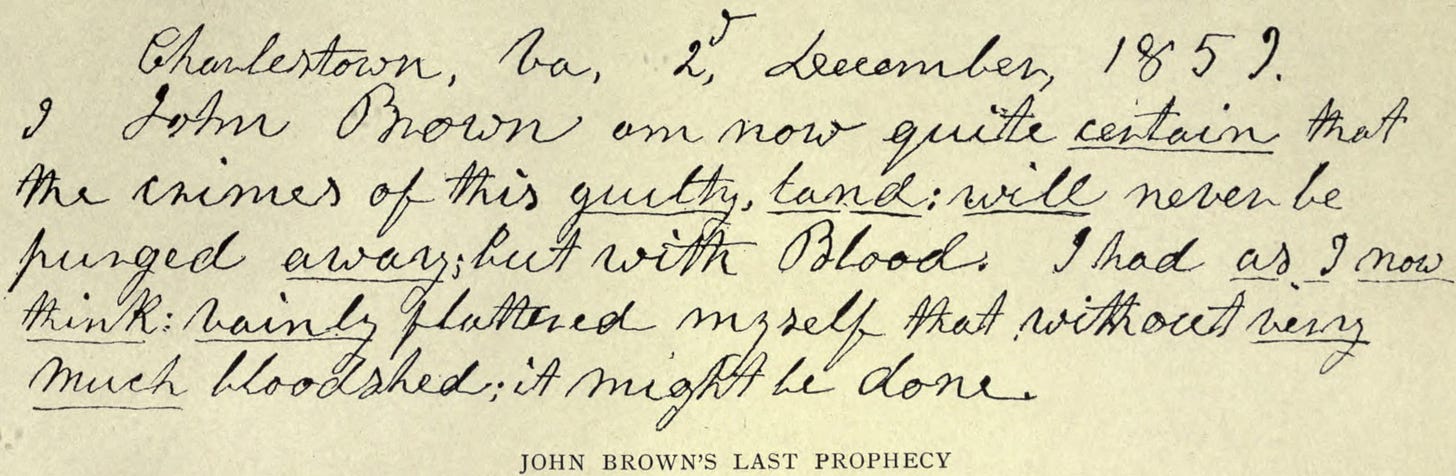 Charlestown, Va, 2d, December, 1859.
I John Brown am now quite certain that
the crimes of this guilty, land: will never be
purged away; but with Blood. I had as I now
think: vainly flattered myself that without very
much bloodshed; it might be done.
JOHN BROWN'S LAST PROPHECY